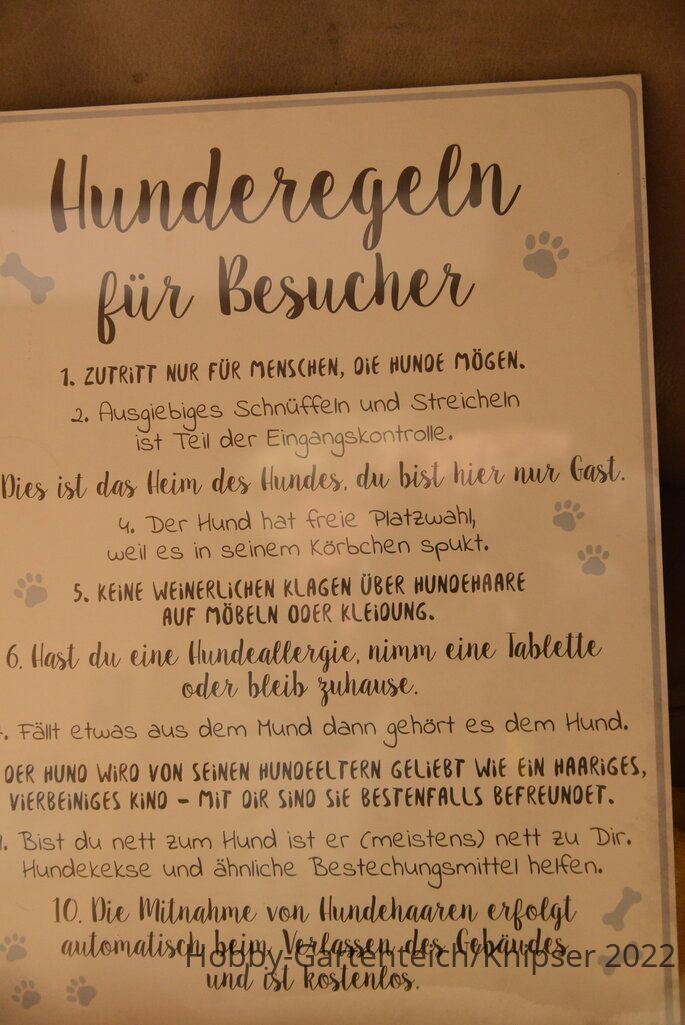 Hunderegeln
für Besucher
1. ZUTRITT NUR FÜR MENSCHEN, DIE HUNDE MÖGEN.
2. Ausgiebiges Schnüffeln und Streicheln
ist Teil der Eingangskontrolle.
Dies ist das Heim des Hundes, du bist hier nur Gast.
4. Der Hund hat freie Platzwahl,
weil es in seinem Körbchen spukt.
5. KEINE WEINERLICHEN KLAGEN ÜBER HUNDEHAARE
AUF MÖBELN ODER KLEIDUNG.
6. Hast du eine Hundeallergie, nimm eine Tablette
oder bleib zuhause.
. Fällt etwas aus dem Mund dann gehört es dem Hund.
DER HUND WIRD VON SEINEN HUNDEELTERN GELIEBT WIE EIN HAARIGES,
VIERBEINIGES KIND – MIT DIR SIND SIE BESTENFALLS BEFREUNDET.
. Bist du nett zum Hund ist er (meistens) nett zu Dir.
Hundekekse und ähnliche Bestechungsmittel helfen.
10. Die Mitnahme von Hundehaaren erfolgt
automatisch beim Verlassen des Gebäudes
und ist kostenlos.
Hobby-Gartenteich/Knipser 2022